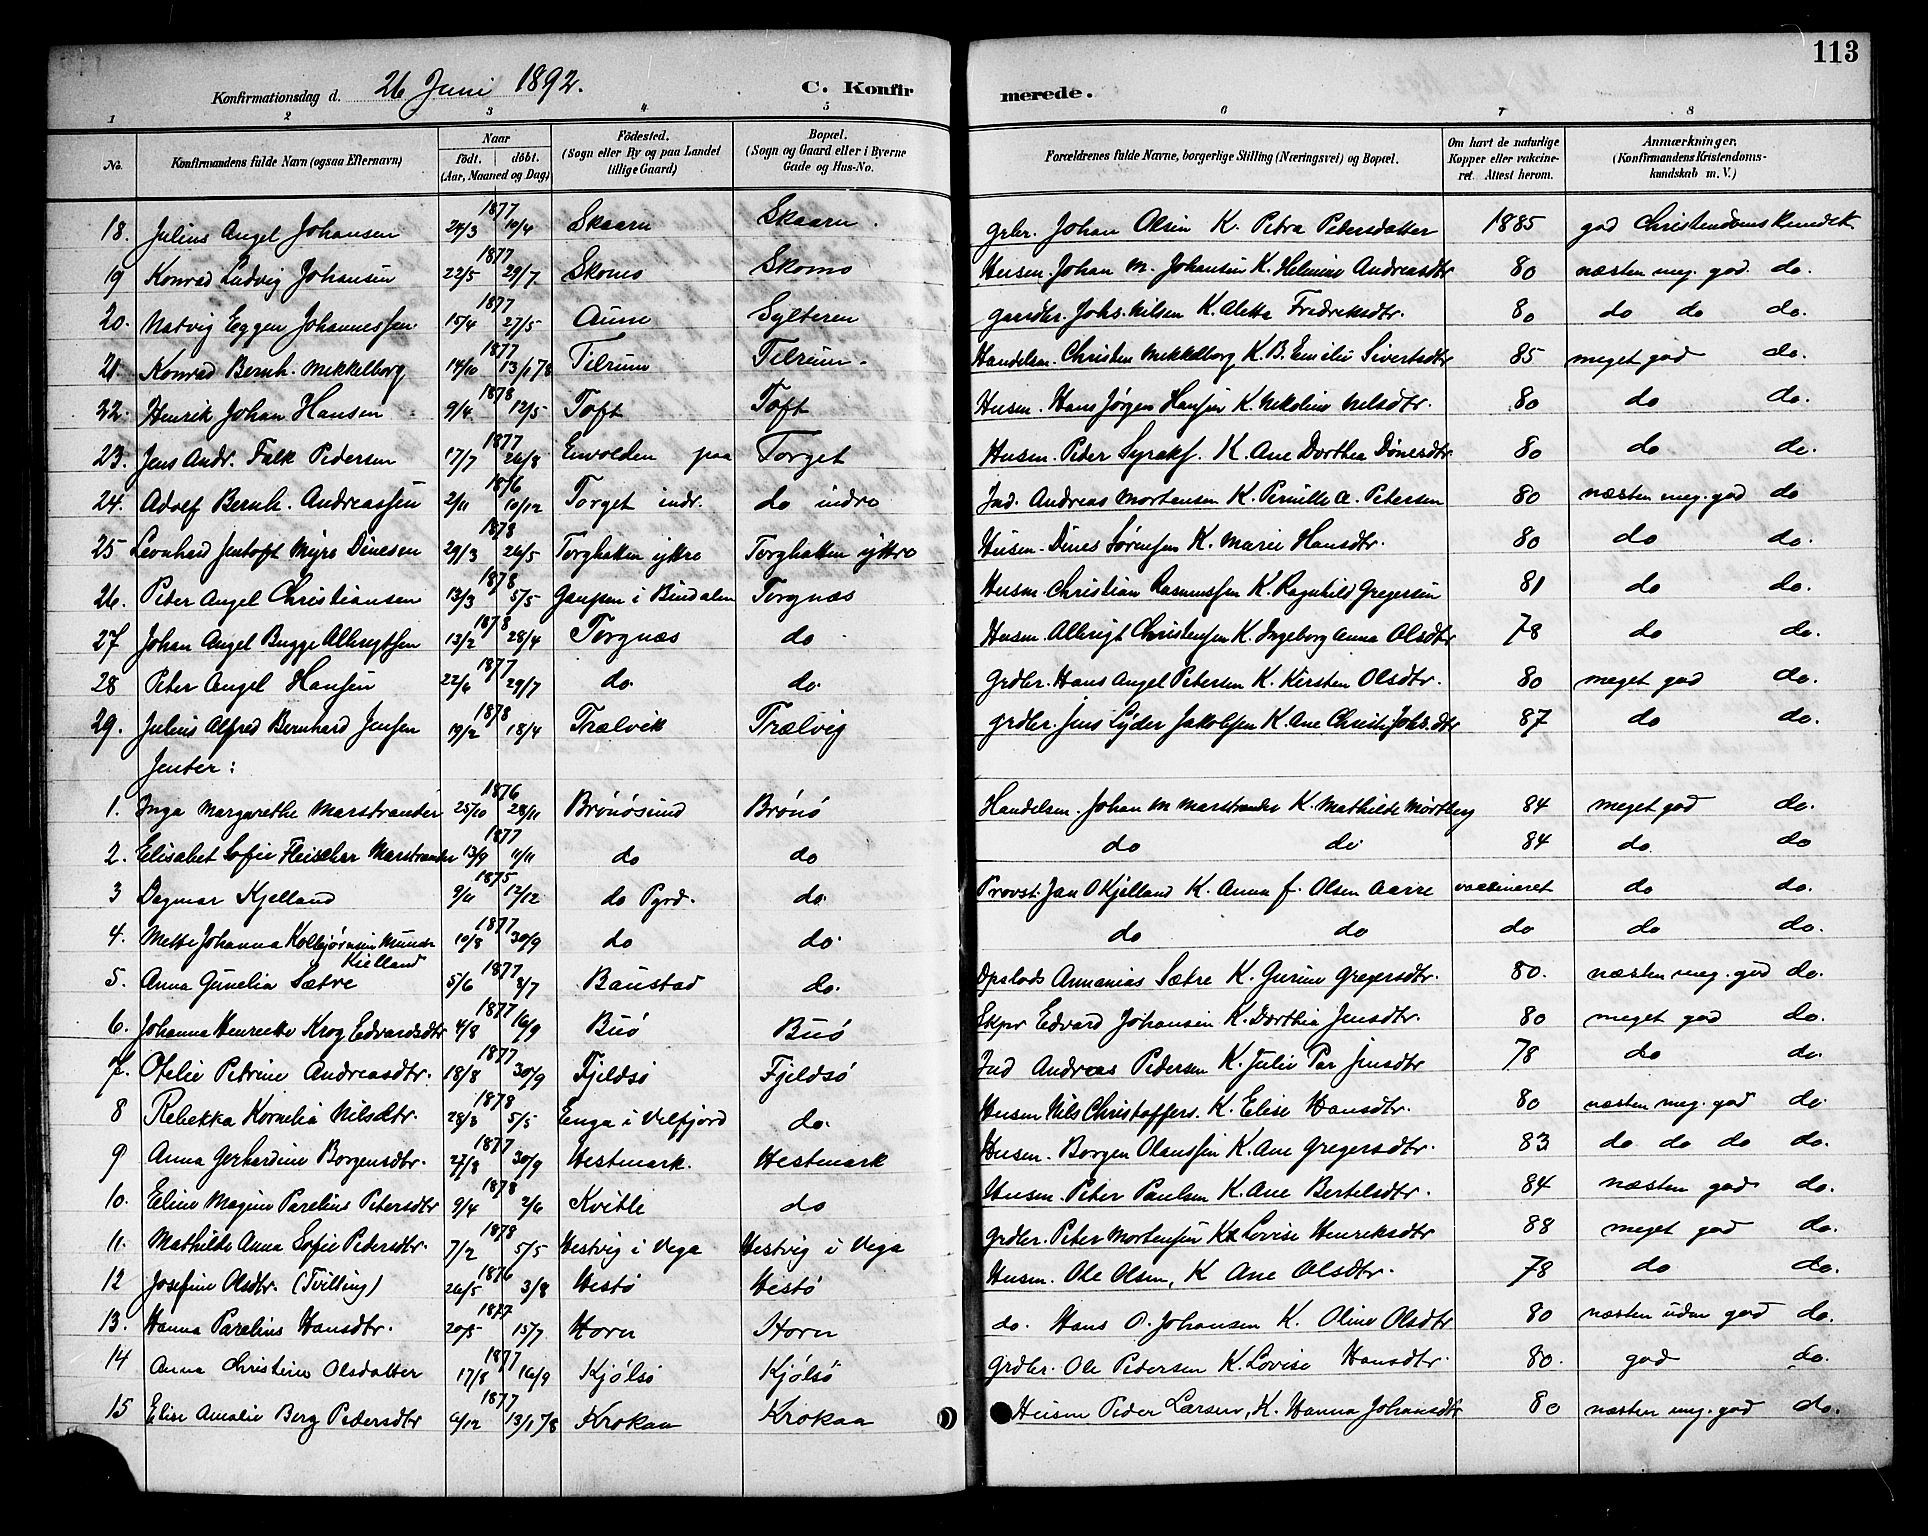 113
Konfirmationsdag d. 26 Juni 1892. C. Konfirmerede.
1 2 3 4 5 6 7 8
No. Konfirmandens fulde Navn (ogsaa Efternavn) Naar født. døbt. (Aar, Maaned og Dag) Fødested. (Sogn eller By og paa Landet tillige Gaard) Bopæl. (Sogn og Gaard eller i Byerne Gade og Hus-No. Forældrenes fulde Navne, borgerlige Stilling (Næringsvei) og Bopæl. Om havt de naturlige Kopper eller vakcineret. Attest herom. Anmærkninger, (Konfirmandens Kristendomskundskab m. V.)
18. Julius Angel Johansen 1877 24/3 10/4 Skaarn Skaarn. grbr. Johan Olsen K. Petra Petersdatter 1885 god Christendomskundsk.
19 Konrad Ludvig Johansen 1877 22/5 29/7 Skomo Skomo Husm. Johan M. Johansen K. Helmine Andreasdtr 80 næsten meg. god. do.
20. Natvig Eggen Johannessen 1877 15/4 27/5 Aune Sylteren gaardbr. Johs. Nilsen K. Aletta Fredriksdtr. 80 do do do.
21. Konrad Bernh. Mekkelborg 1877 14/10 13/1 78 Tilrum Tilrum. Handelsm. Christen Mekkelborg K. B. Emilie Sivertsdtr 85 meget god do.
22. Henrik Johan Hansen 1878 9/4 12/5 Toft Toft Husm. Hans Jørgen Hansen K. Nikoline Nilsdtr. 80 do do.
23. Jens Andr. Falk Pedersen 1877 17/7 26/8 Envolden paa Torget Husm. Peder Syraks. K. Ane Dorthea Dønesdtr 80 do do.
24. Adolf Bernh. Andreassen 1876 2/11 10/12 Torget indr. do indre Ind. Andreas Mortensen K. Pernille A. Petersen 80 næsten meg. god do
25 Leonhard Jentoft Myre Dinesen 1878 29/3 26/5 Torghatten yttre Torghatten yttre Husm. Dines Sørensen K. Marie Hansdtr. 80 do do.
26. Peter Angel Christiansen 1878 13/3 5/5 Gaupen i Bindalen Torgnæs Husm. Christian Rasmussen K. Ragnhild Gregersen 81 do do.
27 Johan Angel Bugge Albrigtsen 1878 13/2 28/4 Torgnæs do Husm. Albrigt Christensen K. Ingeborg Anna Olsdtr 78 do do.
28 Peter Angel Hansen 1877 22/6 29/7 do. do. Grdbr. Hans Angel Petersen K. Kirsten Olsdtr. 80 meget god do.
29. Julius Alfred Bernhard Jensen 1878 19/2 18/4 Trælvik Trælvig grdbr. Jens Lyder Jakobsen K. Ane Christi Johs.dtr 87 do do.
Jenter:
1. Inga Margarethe Marstrander 1876 25/10 28/11 Brønøsund Brønø Handelsm. Johan M Marstrander K. Mathilde Mørtberg 84 meget god do.
2. Elisabet Sofie Fleischer Marstrander 1877 13/9 11/11 do do do do 84 do do
3 Dagmar Kjelland 1875 9/11 12/12 do Pgrd. do. Provst. Jan O Kjelland K. Anna f. Olsen Aarre vaccineret do do.
4. Mette Johanna Kolbjørnsen Munch Kielland 1877 10/8 30/9 do do. do do do do do.
5. Anna Gunelia Sætre 1877 5/6 8/7 Baustad do. Opslods Armanias Sætre K. Gurine Gregersdtr. 80. næsten meg. god do.
6. Johanna Henriette Krog Edvardsdtr 1877 4/8 16/9 Buø Buø Skpr Edvard Johansen K. Dorthea Jensdtr. 80 meget god do.
7. Otelie Petrine Andreasdtr. 1877 18/8 30/9 Fjeldsø Fjeldsø Ind Andreas Pedersen K. Julie Par Jensdtr 78 do do.
8 Rebekka Kornelia Nilsdtr. 1878 28/3 5/5 Enga i Velfjord do. Husm Nils Christoffers. K. Elise Hansdtr. 80 næsten meg. god do.
9 Anna Gerhardine Borgensdtr. 1877 27/8 30/9 Hestmark. Hestmark Husm. Borgen Olaussen K. Ane Gregersdtr. 83 do do do do.
10. Eline Magine Parelius Petersdtr 1878 9/4 2/6 Kvitle do Husm. Peter Paulsen K. Ane Bertelsdtr. 84 næsten god do.
11. Mathilde Anna Sofie Pedersdtr. 1878 7/2 5/5 Hestvig i Vega Hestvig i Vega Grdbr. Peter Mortensen K Lovise Henriksdtr 88 meget god do.
12 Josefine Olsdtr. (Tvilling) 1876 26/5 3/8 Hestø Hestø Husm. Ole Olsen, K Ane Olsdtr. 78 do do.
13. Hanna Parelius Hansdtr. 1877 20/5 15/7 Horn Horn do. Hans O. Johansen K. Oline Olsdtr 80 næsten uden god do.
14 Anna Christine Olsdatter 1877 17/8 16/9 Kjølsø Kjølsø Grdbr. Ole Pedersen K. Lovise Hansdtr. 80. god do.
15 Elise Amalie Berg Pedersdtr 1877 6/12 13/1 78 Krokaa Krokaa Husm Peder Larsen, K. Hanna Johansdtr 80 næsten meg. god do.